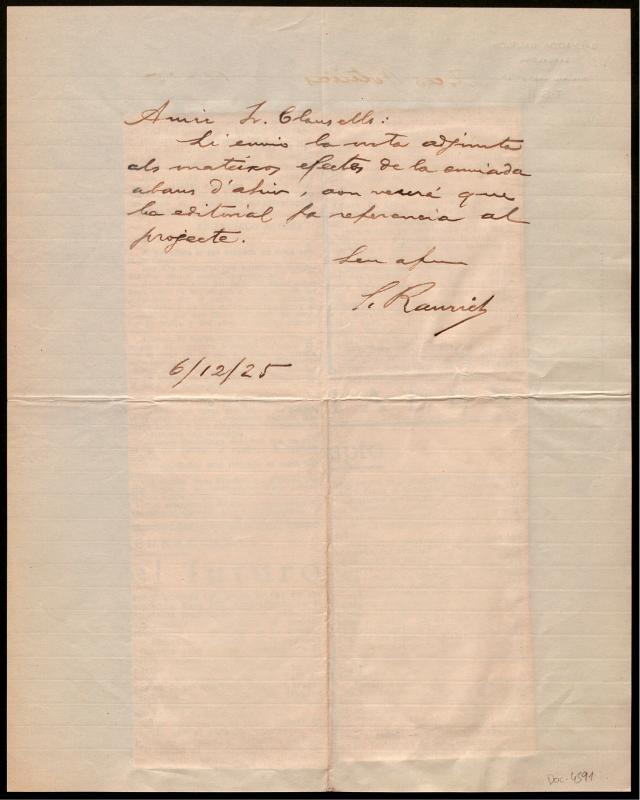 Amic Sr. Clausells:
Li envio la nota adjunta
als mateixos efectes de la enviada
abans d'ahir, aon veurá que
la editorial fa referencia al
projecte.
Seu afm
S. Raurich
6/12/25
Doc-4591